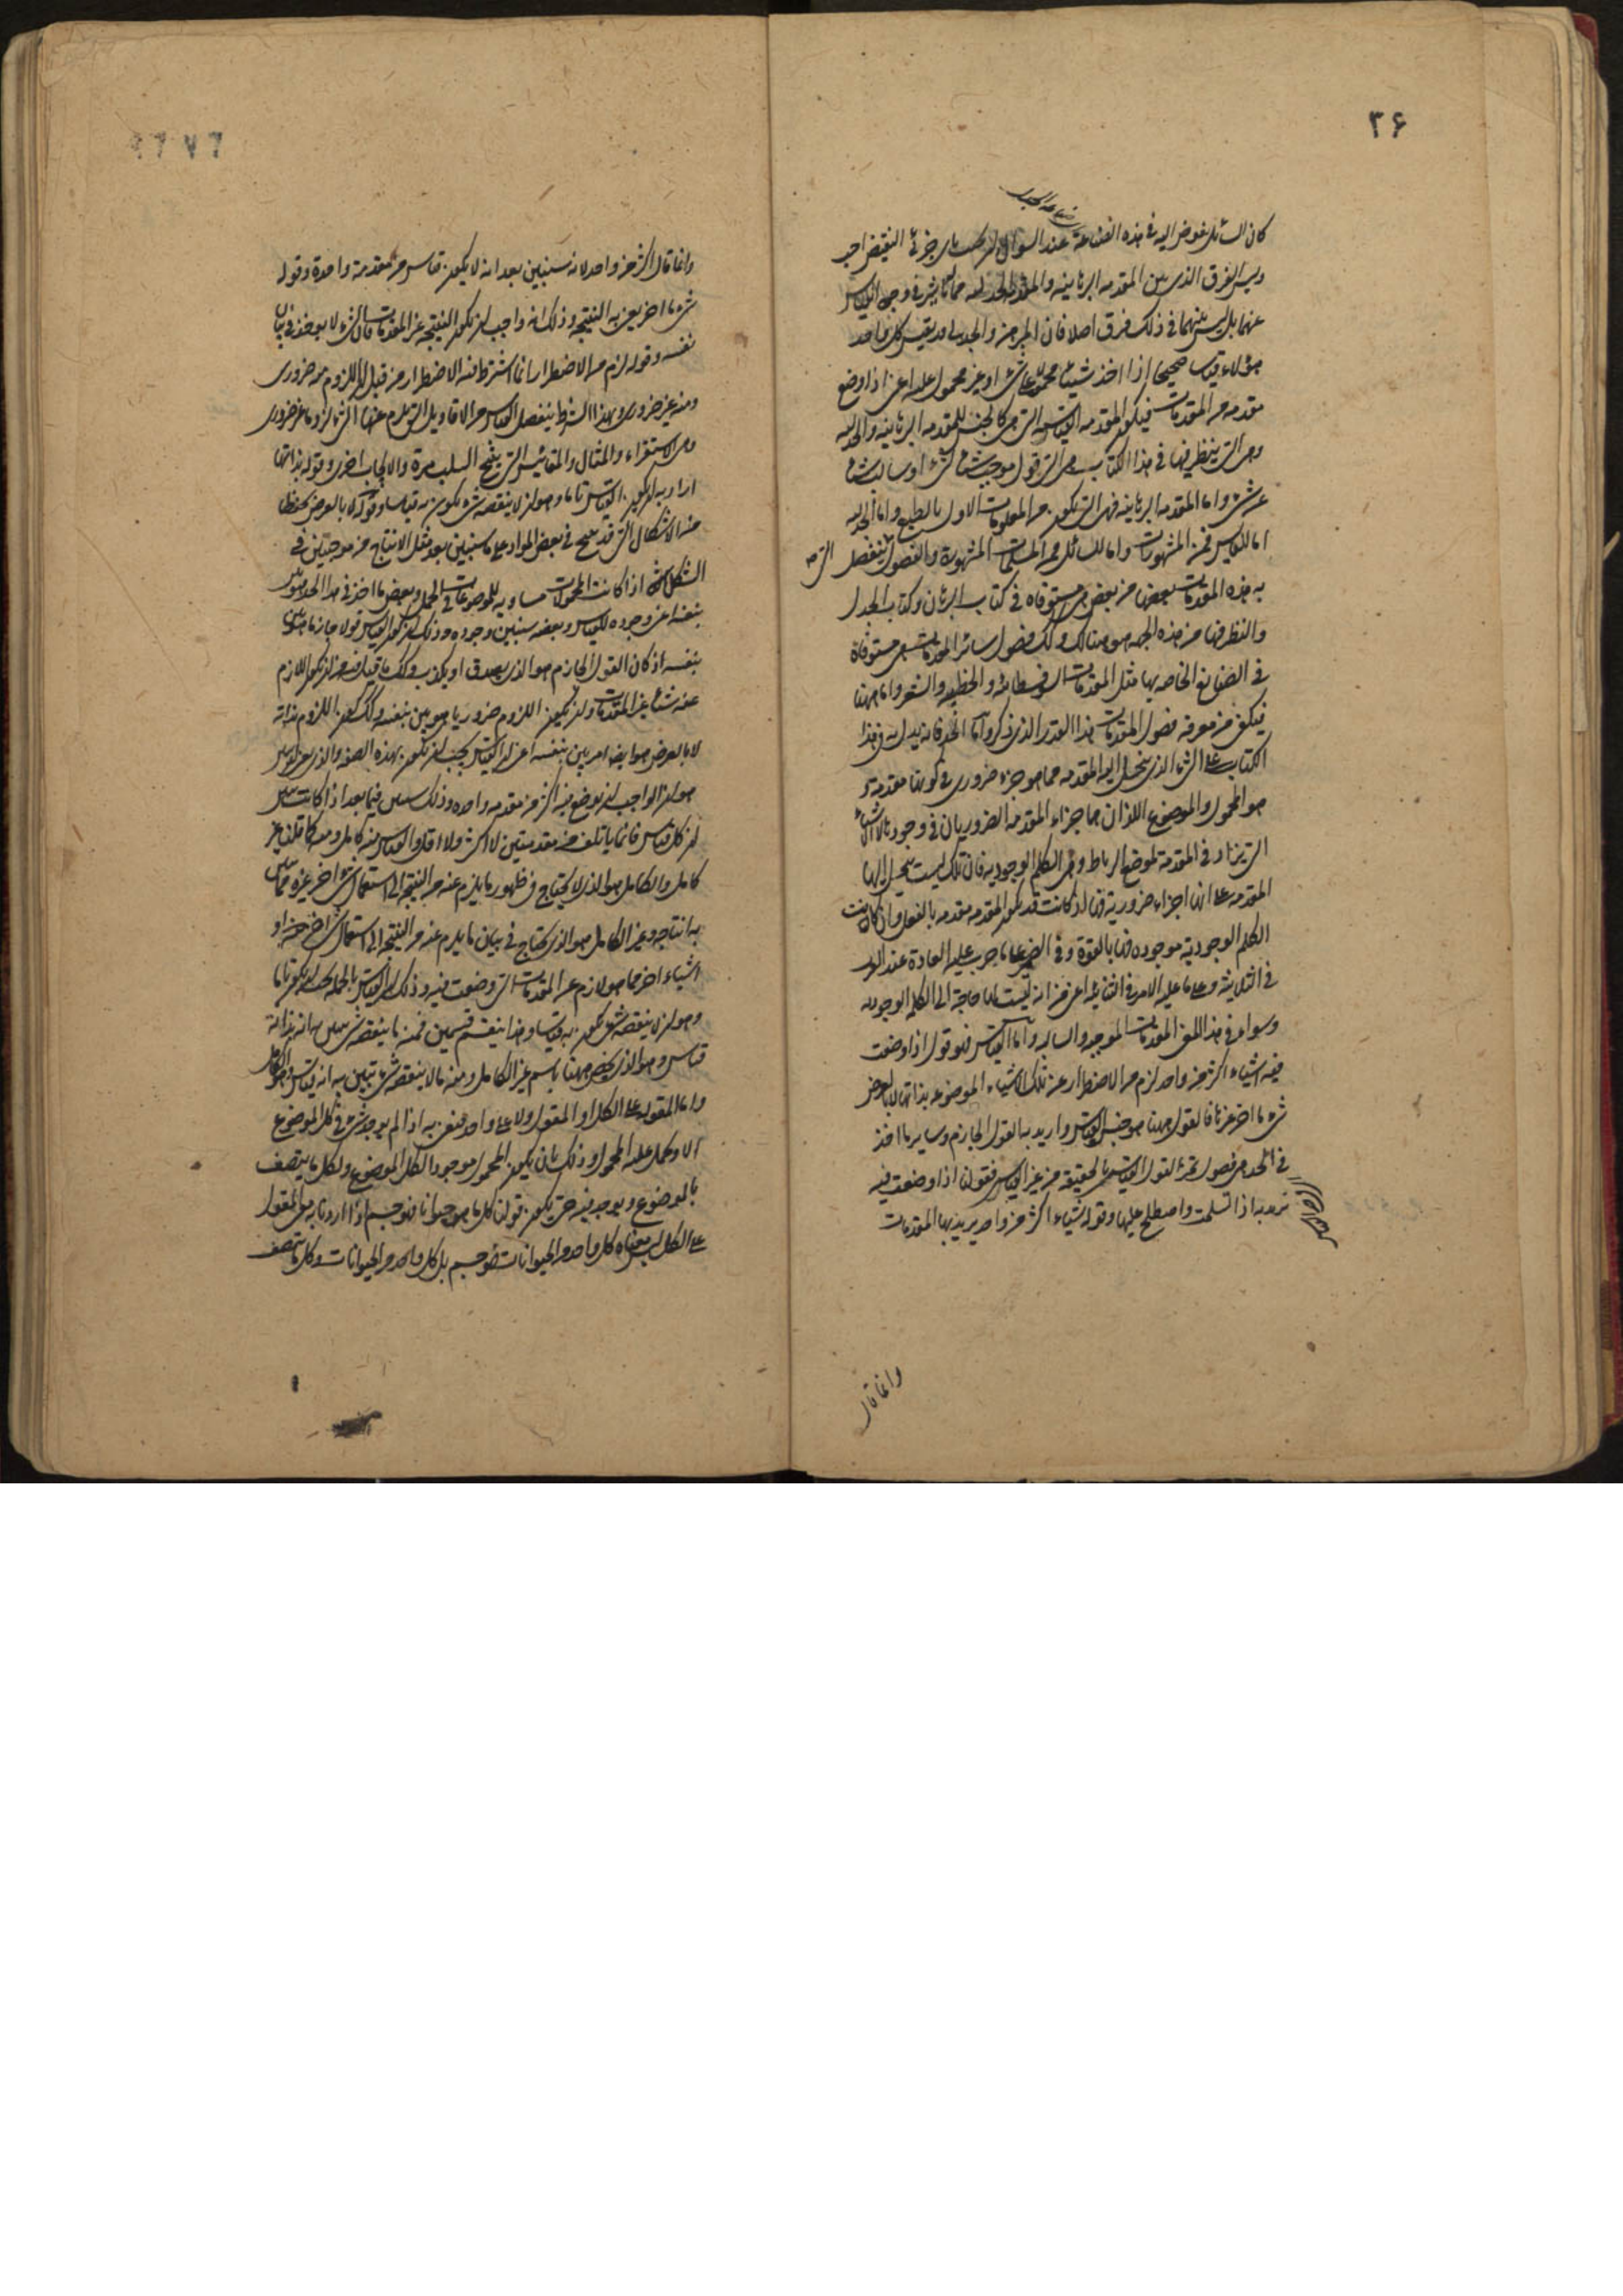 ۳۶
كان السائل مفوض اليه فى هذه الصناعة عند السؤال ان يجيب باى جزئى النقيض احب
وليس الفرق الذى بين المقدمه البرهانيه والمقدمه الجدليه مما له تاثير فى وجود القياس
عنهما بل ليس بينهما فى ذلك فرق اصلا فان المبرهن والجدلى قد يقيس كل واحد
هؤلاء قياسا صحيحا اذا اخذ شيئا محمولا على شئ او غير محمول عليه اعنى اذا وضع
مقدمه من المقدمات فيكون المقدمه القياسيه التى هى كالجنس للمقدمه البرهانيه والجدليه
وهى التى ينظر فيها فى هذا الكتاب هى التى قول موجب شيئا لشئ او سالب شيئا
عن شئ واما المقدمه البرهانيه فهى التى تكون من المعلومات الاول بالطبع واما الجدليه
اما للقايس فمن المشهورات واما للسائل فمن المسلمات المشهورة والفصول التى ينفصل
به هذه المقدمات بعضها من بعض هى مستوفاه فى كتاب البرهان وكتاب الجدل
والنظر فيها من هذه الجهه هو هنالك وكذلك فصول سائر المقدمات هى مستوفاة
فى الصنايع الخاصه بها مثل المقدمات السوفسطائيه والخطبيه والشعريه واما هنا
فيكفى من معرفه فصول المقدمات هذا القدر الذى ذكر واما الحد فانه يدل به فى هذا
الكتاب على الشئ الذى ينحل اليه المقدمه مما هو جزء ضرورى فى كونها مقدمه و
هو المحمول والموضوع اللذان هما جزءا المقدمه الضروريان فى وجودها لا الاشياء
التى يزاد فى المقدمة لموضع الرباط وهى الكلم الوجوديه فان تلك ليست ينحل اليها
المقدمه على انها اجزاء ضرورية فيها اذ كانت قد يكون المقدمه مقدمه بالفعل وان كانت
الكلم الوجودية موجوده فيها بالقوة وفى الضمير على ما جرت عليه العادة عند العرب
فى الثلاثية وعلى ما عليه الامر فى الثنائيه اعنى من انه ليست لها حاجة الى الكلم الوجوديه
وسواء فى هذا المعنى المقدمات الموجبه والسالبه واما القياس فهو قول اذا وضعت
فيه اشياء اكثر من واحد لزم من الاضطرار عن تلك الاشياء الموضوعه بذاتها لا بالعرض
شئ ما اخر غيرها فالقول هنا هو جنس القياس واريد به القول الجازم وساير ما اخذ
فى الحد هى فصول تميز القول القياسى بالحقيقه من غير القياس فقولنا اذا وضعت فيه
نريد به اذا تسلمت واصطلح عليها وقوله اشياء اكثر من واحد يريد بها المقدمات
وانما قال
وانما قال اكثر من واحد لانه سيبين بعد انه لا يكون قياس من مقدمة واحدة وقوله
شئ ما اخر يعنى به النتيجه وذلك انه واجب ان تكون النتيجه غير المقدمات فان الشئ لا يوخذ فى بيان
نفسه وقوله لزم من الاضطرار انما اشترط فيه الاضطرار من قبل ان اللزوم منه ضرورى
ومنه غير ضرورى وبهذا الشرط ينفصل القياس من الاقاويل التى يلزم عنها الشئ لزوما غير ضرورى
وهى الاستقراء والمثال والمقائيس التى ينتج السلب مرة والايجاب اخرى وقوله بذاتها
اراد به ان يكون القياس تاما وهو ان لا ينقصه شئ يكون به قياسا وقوله لا بالعرض تحفظا
من الاشكال التى قد ينتج فى بعض المواد على ما سيبين بعد مثل الانتاج من موجبتين فى
الشكل الثانى اذا كانت المحمولات مساويه للموضوعات فى الحمل وبعض ما اخذ فى هذا الحد هو بين
بنفسه اعنى وجوده للقياس وبعضه سيبين وجوده وذلك ان كون القياس قولا جازما هو بين
بنفسه اذ كان القول الجازم هو الذى يصدق او يكذب وكذلك ما قيل فيه من ان يكون اللازم
عنه شيئا غير المقدمات وان يكون اللزوم ضروريا هو بين بنفسه وكذلك كون اللزوم بذاته
لا بالعرض هو ايضا امر بين بنفسه اعنى ان القياس يجب ان يكون بهذه الصفه والذى هو غير بين
هو ان الواجب ان يوضع فيه اكثر من مقدمه واحده وذلك سيبين فيما بعد اذا كانت سيبين
ان كل قياس فانما ياتلف من مقدمتين لا اكثر ولا اقل والقياس منه كامل ومنه كما قلنا غير
كامل والكامل هو الذى لا يحتاج فى ظهور ما يلزم عنه من النتيجه الى استعمال شئ اخر غيره مما يبين
به انتاجه وغير الكامل هو الذى يحتاج فى بيان ما يلزم عنه من النتيجه الى استعمال شئ اخر او
اشياء اخر مما هو لازم عن المقدمات التى وضعت فيه وذلك ان القياس بالجمله يجب ان يكون تاما
وهو ان لا ينقصه شئ يكون به قياسا وهذا ينقسم قسمين فمنه ما ينقصه شئ يبين به انه بذاته
قياس وهو الذى يخص هنا باسم غير الكامل ومنه ما لا ينقصه شئ يتبين به انه قياس وهو الكامل
واما المقول على الكل او المقول ولا على واحد فنعنى به اذا لم يوجد شئ فى كل الموضوع
الا ويحمل عليه المحمول وذلك بان يكون المحمول موجودا لكل الموضوع ولكل ما يتصف
بالموضوع ويوجد فيه حتى يكون قولنا كل ما هو حيوان فهو جسم اذا اردنا به معنى المقول
على الكل ليس معناه كل واحد من الحيوانات فهو جسم بل كل واحد من الحيوانات وكل ما يتصف